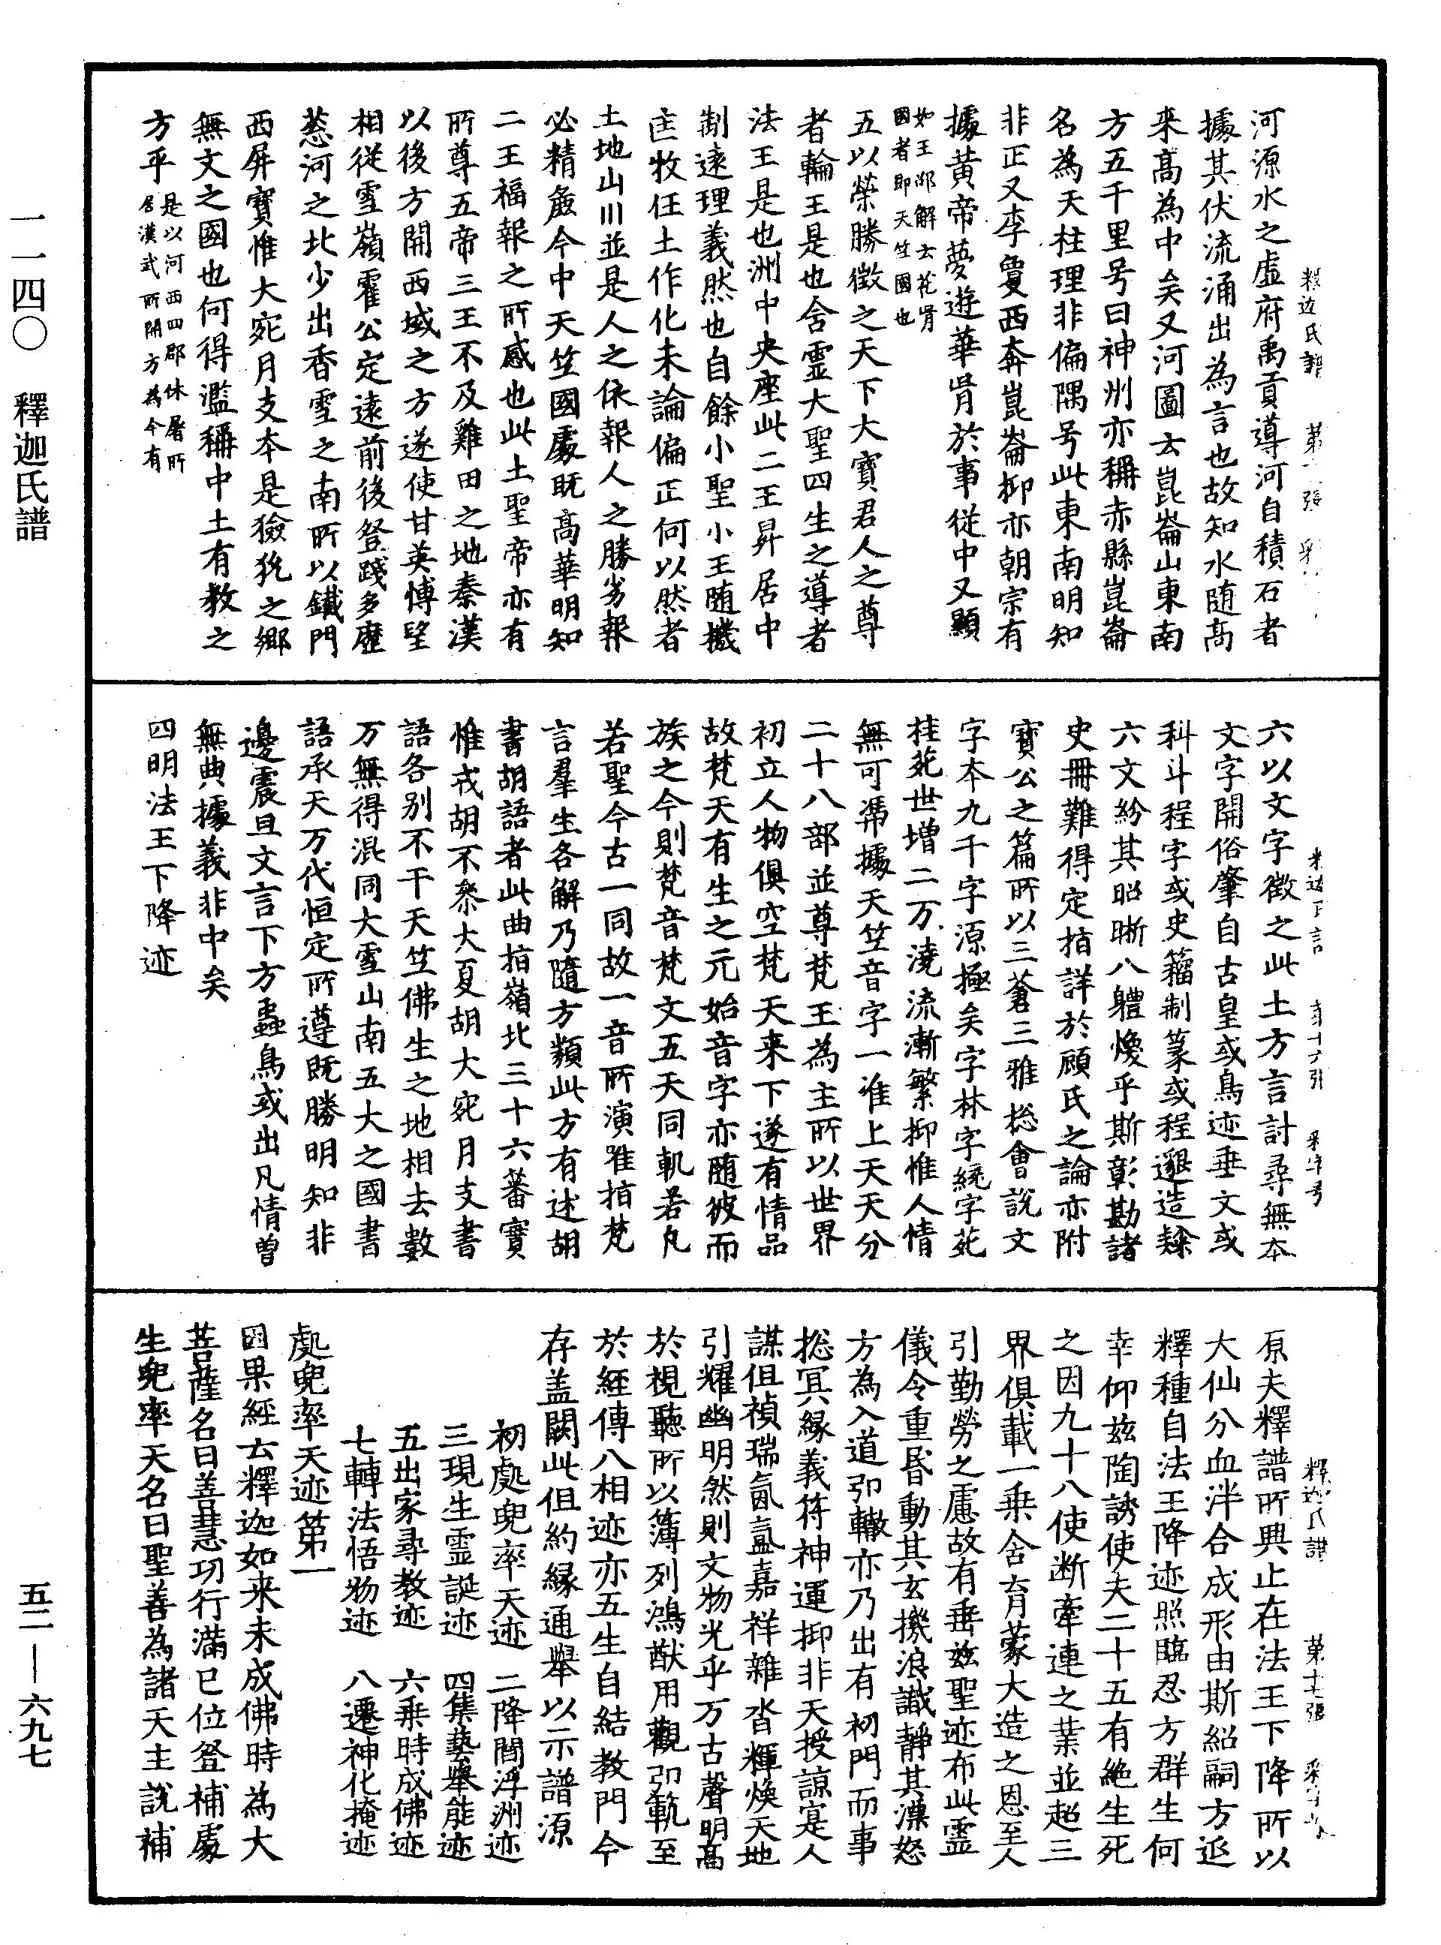 一一四〇　釋迦氏譜
五二—六九七
河源水之虛府禹貢導河自積石者
據其伏流涌出為言也故知水隨高
來高為中矣又河圖云崑崙山東南
方五千里号曰神州亦稱赤縣崑崙
名為天柱理非偏隅号此東南明知
非正又李夐西奔崑崙抑亦朝宗有
據黃帝夢遊華胥於事從中又顯
如王邵解云花胥
國者即天竺國也
五以榮勝徵之天下大寶君人之尊
者輪王是也含靈大聖四生之導者
法王是也洲中央座此二王昇居中
制遠理義然也自餘小聖小王随機
庄牧任土作化未論偏正何以然者
土地山川並是人之依報人之勝劣報
必精麁今中天竺國處既高華明知
二王福報之所感也此土聖帝亦有
所尊五帝三王不及雞田之地秦漢
以後方開西域之方遂使甘英博望
相從雪嶺霍公定遠前後登踐多歷
葱河之北少出香雪之南所以鐵門
西屏寶惟大宛月支本是獫狁之鄉
無文之國也何得濫稱中土有教之
方乎
是以河西四郡休屠所
居漢武所開方為今有
六以文字徵之此土方言討尋無本
文字開俗肇自古皇或鳥迹垂文或
科斗程字或史籀制篆或程邈造隸
六文紛其昭晰八體煥乎斯彰勘諸
史冊難得定指詳於顧氏之論亦附
寶公之篇所以三蒼三雅捴會說文
字本九千字源極矣字林字統字苑
桂苑世增二万澆流漸繁抑惟人情
無可馮據天竺音字一准上天天分
二十八部並尊梵王為主所以世界
初立人物俱空梵天来下遂有情品
故梵天有生之元始音字亦随彼而
族之今則梵音梵文五天同軌若凡
若聖今古一同故一音所演唯指梵
言羣生各解乃隨方類此方有述胡
書胡語者此曲指嶺北三十六蕃寶
惟戎胡不叅大夏胡大宛月支書
語各別不干天竺佛生之地相去數
万無得混同大雪山南五大之國書
語承天万代恒定所遵既勝明知非
邊震旦文言下方蟲鳥或出凡情曾
無典據義非中矣
四明法王下降迹
原夫釋譜所興止在法王下降所以
大仙分血泮合成形由斯紹嗣方返
釋種自法王降迹照臨忍方群生何
幸仰兹陶誘使夫二十五有絶生死
之因九十八使断牽連之業並超三
界俱載一乗舍育蒙大造之恩至人
引勤勞之慮故有垂兹聖迹布此靈
儀令重昏動其玄機浪識靜其凜怒
方為入道卭轍亦乃出有初門而事
捴冥緣義符神運抑非天授諒寔人
謀但禎瑞氤氳嘉祥雜沓輝煥天地
引耀幽明然則文物光乎万古聲明髙
於視聽所以簿列鴻猷用觀卭軌至
於經傳八相迹亦五生自結教門今
存盖闕此但約緣通舉以示譜源
初處兜率天迹　二降閻浮洲迹
三現生靈誕迹　四集藝舉能迹
五出家尋教迹　六乗時成佛迹
七轉法悟物迹　八遷神化掩迹
處兜率天迹第一
因果經云釋迦如来未成佛時為大
菩薩名曰善慧功行滿已位登補處
生兜率天名曰聖善為諸天主說補